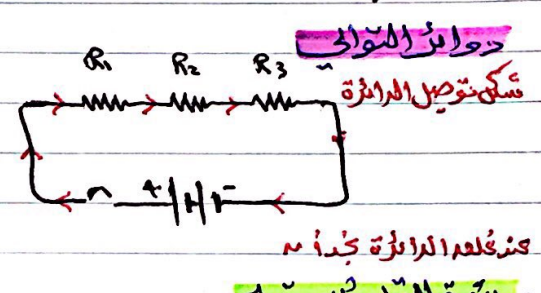 دوائر التوالي
شكل توصيل الدائرة
R₁ R₂ R₃
+ −
عند غلق الدائرة نجد أن